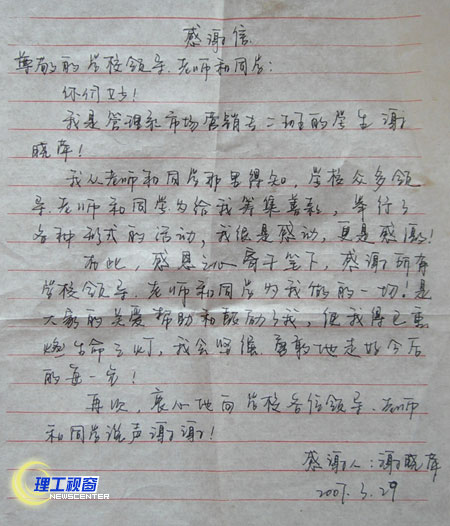 感谢信
尊敬的的学校领导、老师和同学:
你们好!
我是管理系市场营销专二班的学生谢
晓萍!
我从老师和同学那里得知,学校众多领
导、老师和同学为给我筹集善款,举行了
各种形式的活动,我很是感动,更是感激!
在此,感恩之心寄于笔下,感谢所有
学校领导、老师和同学为我做的一切!是
大家的关爱帮助和鼓励了我,使我得已重
燃生命之灯,我会坚强、勇敢地走好今后
的每一步!
再次,衷心地向学校各位领导、老师
和同学说声谢谢!
感谢人:谢晓萍
2007.3.29
理工视窗
NEWSCENTER